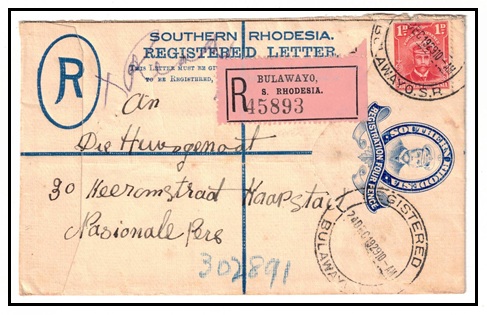 SOUTHERN RHODESIA.
REGISTERED LETTER.
THIS LETTER MUST BE GIVEN
TO BE REGISTERED,
R
BULAWAYO,
S. RHODESIA.
R 45893
1D
BULAWAYO S.R.
An
Die Huisgenoot
30 Keeromstraat Kaapstad
Nasionale Pers
302891
SOUTHERN RHODESIA
REGISTRATION FOUR PENCE
REGISTERED
24 DEC 1929 10-AM
BULAWAYO